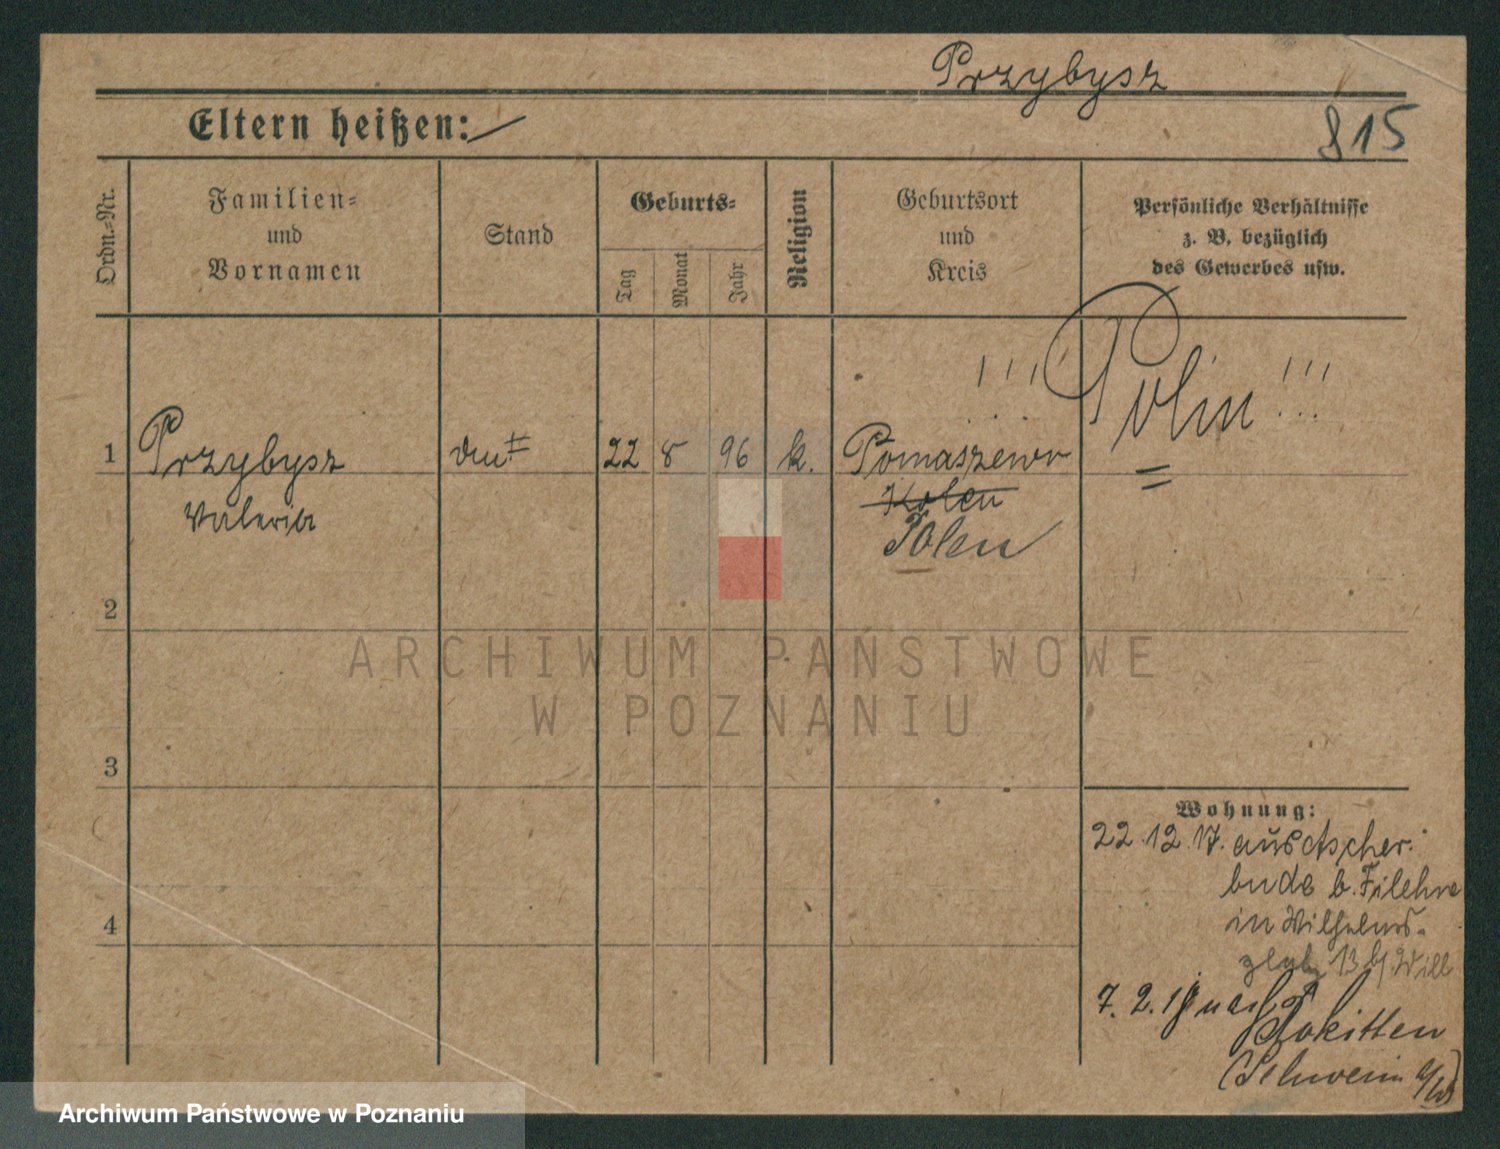 Przybysz
815
Eltern heißen: —
Ordn.-Nr.
Familien-
und
Vornamen
Stand
Geburts-
Tag
Monat
Jahr
Religion
Geburtsort
und
Kreis
Persönliche Verhältnisse
z. B. bezüglich
des Gewerbes usw.
!!! Polin !!!
1 Przybysz 22 8 96 k. Pomaszewo
Valeria Kolen
Polen
2
3
4
Wohnung:
22.12.17. aus Ascher-
bude b. Filehne
in Wilhelms-
platz 13 b/ Will
7.2.1 nach Rokitten
(Schwerin a/W)
ARCHIWUM PAŃSTWOWE
W POZNANIU
Archiwum Państwowe w Poznaniu